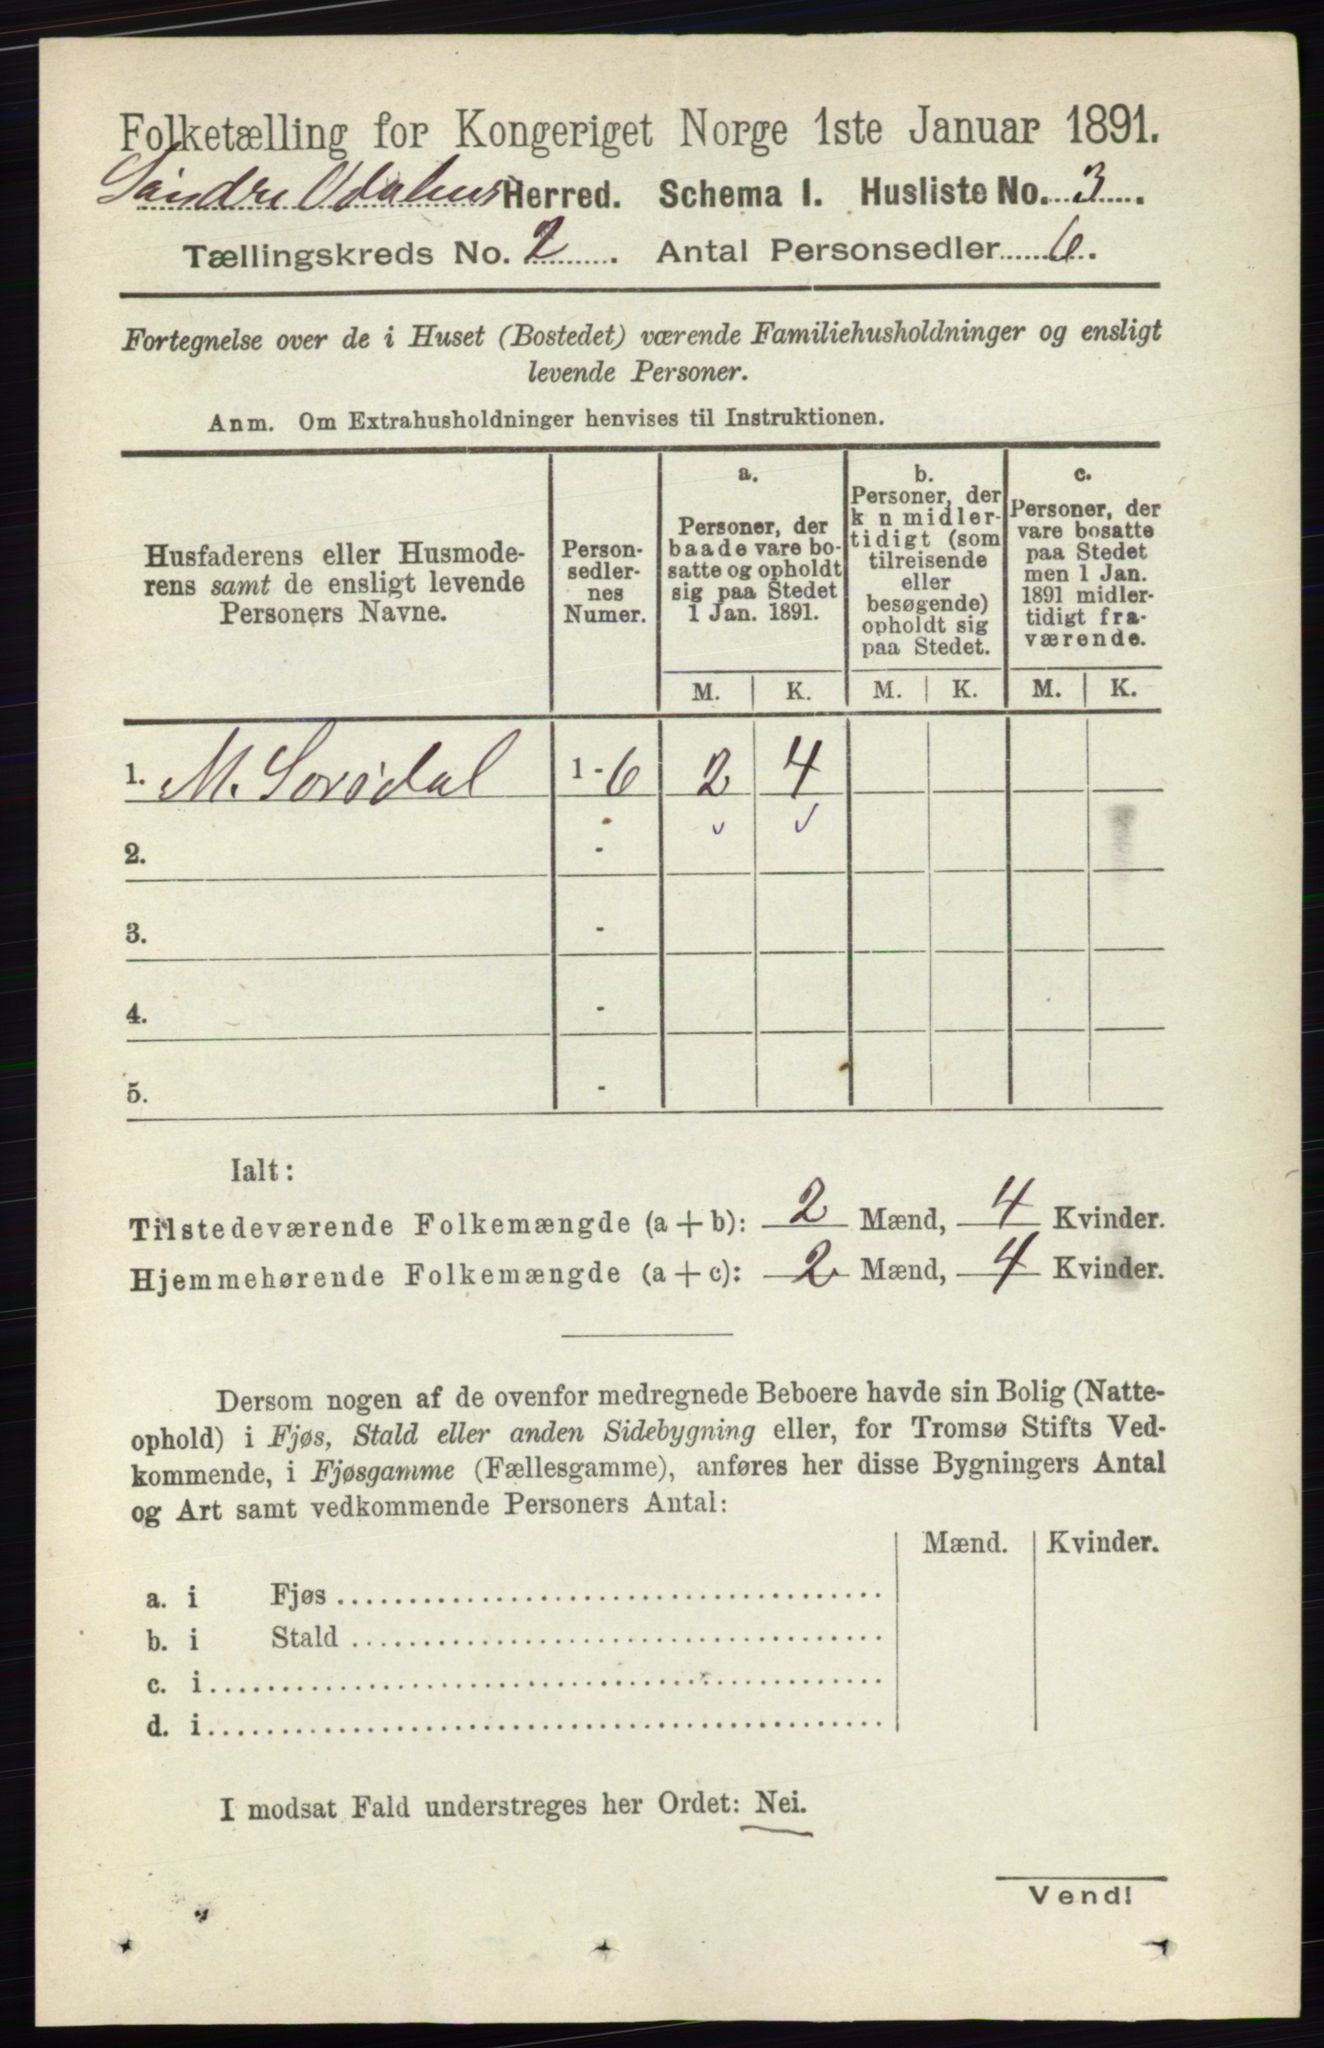 Folketælling for Kongeriget Norge 1ste Januar 1891.
Søndre Odalens Herred. Schema I. Husliste No. 3.
Tællingskreds No. 2. Antal Personsedler 6.
Fortegnelse over de i Huset (Bostedet) værende Familiehusholdninger og ensligt
levende Personer.
Anm. Om Extrahusholdninger henvises til Instruktionen.
Husfaderens eller Husmode-
rens samt de ensligt levende
Personers Navne.
Person-
sedler-
nes
Numer.
a.
Personer, der
baade vare bo-
satte og opholdt
sig paa Stedet
1 Jan. 1891.
b.
Personer, der
k n midler-
tidigt (som
tilreisende
eller
besøgende)
opholdt sig
paa Stedet.
c.
Personer, der
vare bosatte
paa Stedet
men 1 Jan.
1891 midler-
tidigt fra-
værende.
M. K. M. K. M. K.
1. M. Sorødal 1-6 2 4
2. -
3. -
4. -
5. -
Ialt:
Tilstedeværende Folkemængde (a + b): 2 Mænd, 4 Kvinder.
Hjemmehørende Folkemængde (a + c): 2 Mænd, 4 Kvinder.
Dersom nogen af de ovenfor medregnede Beboere havde sin Bolig (Natte-
ophold) i Fjøs, Stald eller anden Sidebygning eller, for Tromsø Stifts Ved-
kommende, i Fjøsgamme (Fællesgamme), anføres her disse Bygningers Antal
og Art samt vedkommende Personers Antal:
Mænd. Kvinder.
a. i Fjøs
b. i Stald
c. i
d. i
I modsat Fald understreges her Ordet: Nei.
Vend!